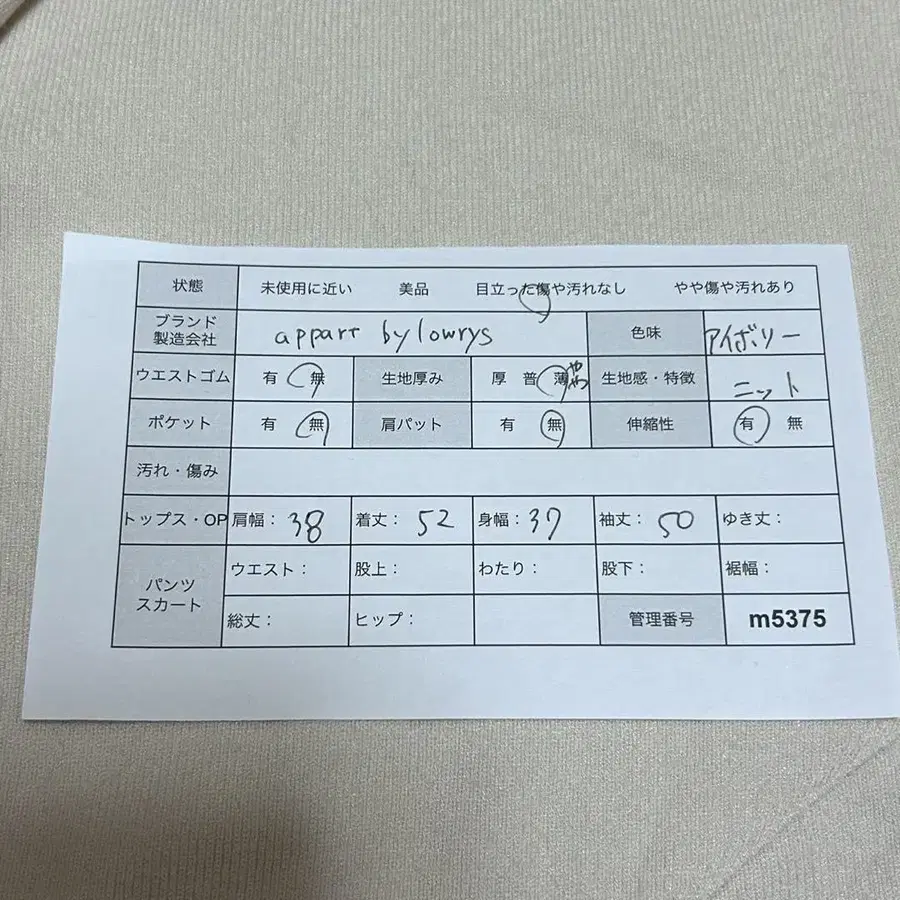 状態 未使用に近い 美品 目立った傷や汚れなし やや傷や汚れあり
ブランド
製造会社 appart by lowrys 色味 アイボリー
ウエストゴム 有 無 生地厚み 厚 普 薄 やや 生地感・特徴 ニット
ポケット 有 無 肩パット 有 無 伸縮性 有 無
汚れ・傷み
トップス・OP 肩幅: 38 着丈: 52 身幅: 37 袖丈: 50 ゆき丈:
パンツ
スカート ウエスト: 股上: わたり: 股下: 裾幅:
総丈: ヒップ: 管理番号 m5375